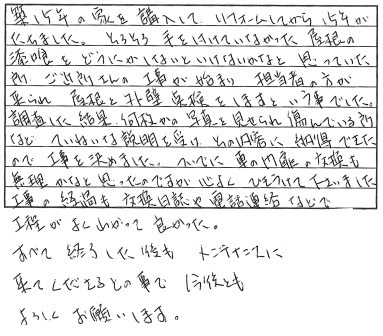 築15年の家を購入して、リフォームしてから15年が
たちました。そろそろ手を付けていなかった屋根の
漆喰をどうにかしないといけないかなと思っていた
所、ご近所さんの工事が始まり担当者の方が
来られ屋根と外壁点検をしますという事でした。
調査した結果、何枚かの写真を見せられ傷んでいる所
など、ていねいな説明を受け、その内容に納得できた
ので工事を決めました。ついでに車の門扉の交換も
無理かなと思ったのですが心よくひきうけて下さいました
工事の経過も交換日誌や電話連絡などで
工程がよくわかって良かった。
すべて終了した後もメンテナンスに
来てくださるとの事で今後とも
よろしくお願いします。